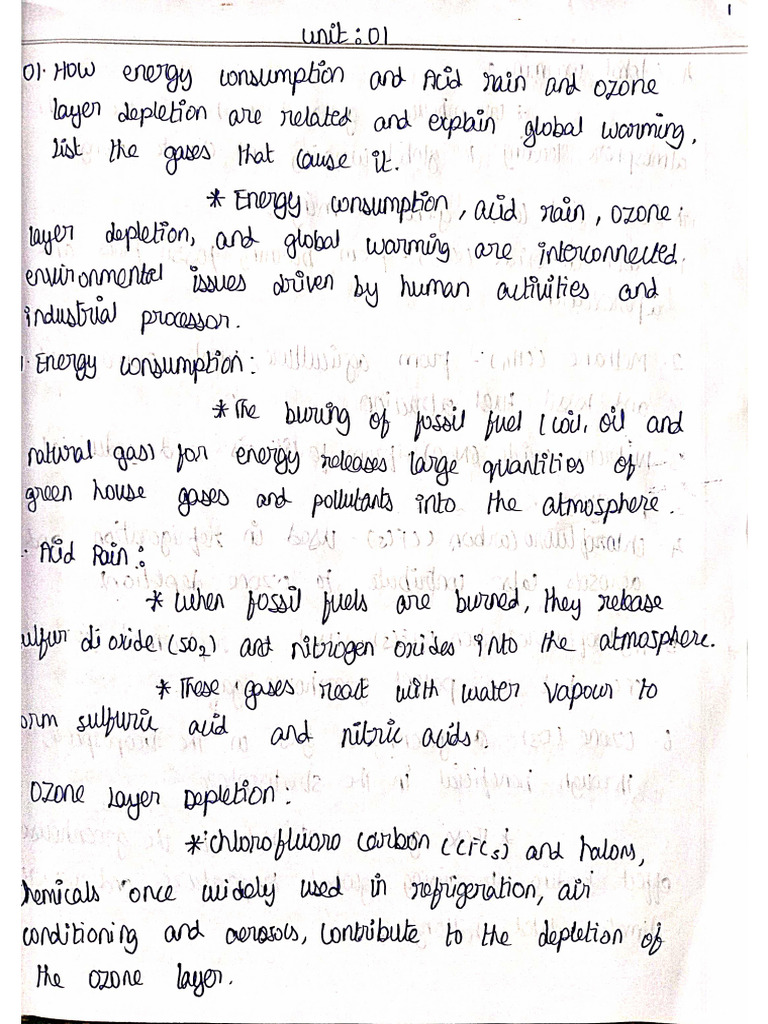 1
Unit : 01
01. How energy consumption and Acid rain and ozone
layer depletion are related and explain global warming,
list the gases that cause it.
* Energy consumption, acid rain, ozone
layer depletion, and global warming are interconnected
environmental issues driven by human activities and
industrial processor.
1. Energy consumption :
* The buring of fossil fuel (coil, oil and
natural gas) for energy releases large quantities of
green house gases and pollutants into the atmosphere.
Acid Rain :
* When fossil fuels are burned, they rebase
ulfur di oxide (SO2) and nitrogen oxides into the atmosphere.
* These gases react with water vapour to
orm sulfuric acid and nitric acids.
Ozone Layer Depletion :
* chlorofluoro carbon (CFCs) and halons,
hemicals once widely used in refrigeration, air
conditioning and aerosols, contribute to the depletion of
the ozone layer.